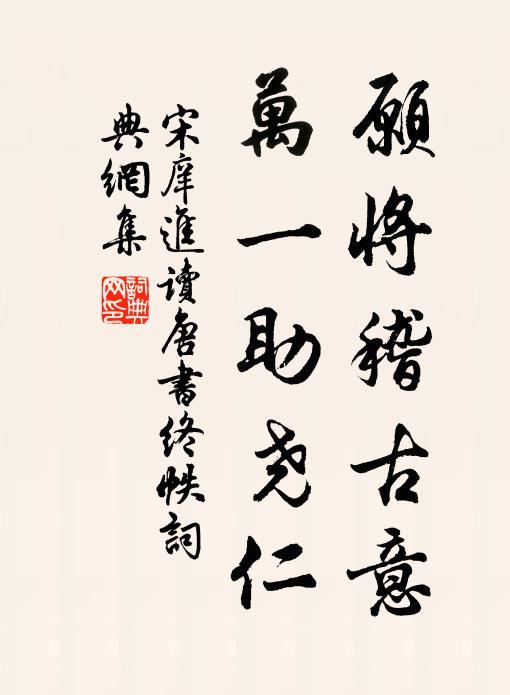 願將稽古意
萬一助尧仁
宋庠進讀唐書終帙詞
典網集
詞典
网印